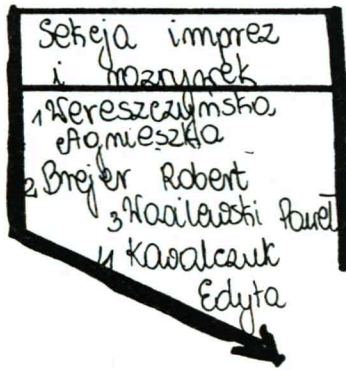 Sekcja imprez
i rozrywek
1 Wereszczyńska
Agnieszka
2 Brejer Robert
3 Wasilewski Paweł
4 Kowalczuk
Edyta